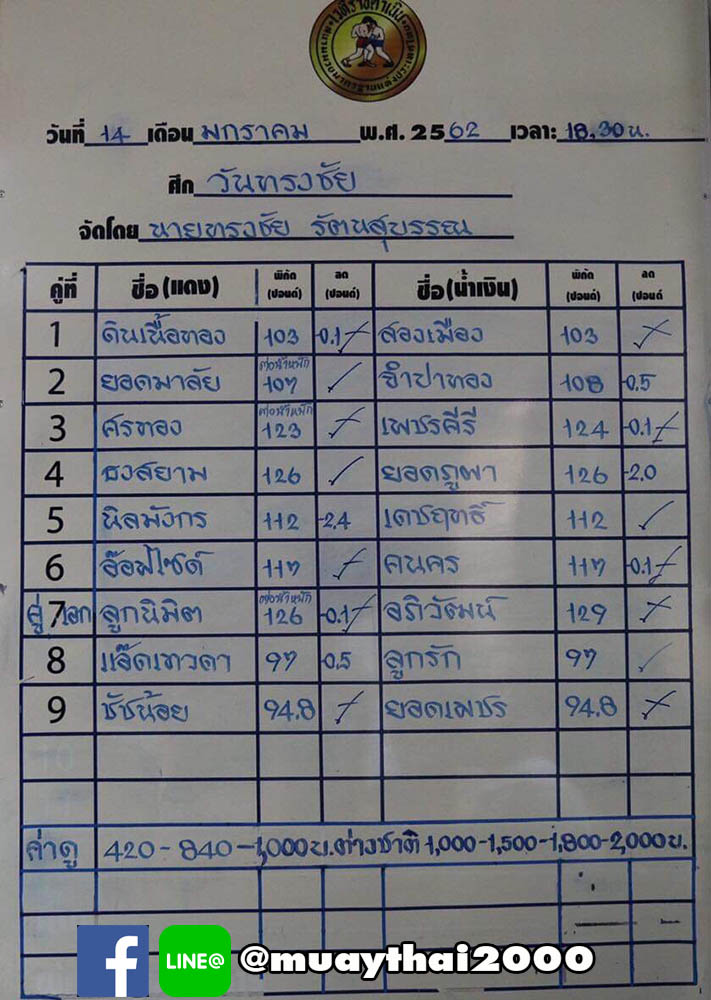 เวทีราชดำเนิน
วันที่ 14 เดือน มกราคม พ.ศ. 2562 เวลา: 18.30 น.
ศึก วันทรงชัย
จัดโดย นายทรงชัย รัตนสุบรรณ
คู่ที่ ชื่อ (แดง) พิกัด (ปอนด์) ลด (ปอนด์) ชื่อ (น้ำเงิน) พิกัด (ปอนด์) ลด (ปอนด์
1 ดินเนื้อทอง 103 -0.1 สองเมือง 103
2 ยอดมาลัย ต่อน้ำหนัก 107 ✓ จำปาทอง 108 -0.5
3 ศรทอง ต่อน้ำหนัก 123 เพชรคีรี 124 -0.1
4 ธงสยาม 126 ✓ ยอดภูผา 126 -2.0
5 นิลมังกร 112 -2.4 เดชฤทธิ์ 112 ✓
6 อ๊อฟไซด์ 117 คนคร 117 -0.1
คู่เอก 7 ลูกนิมิต ต่อน้ำหนัก 126 -0.1 อภิวัฒน์ 129
8 แอ๊ดเทวดา 97 -0.5 ลูกรัก 97 ✓
9 ชัชน้อย 94.8 ยอดเพชร 94.8
ค่าดู 420 - 840 - 1,000 บ. ต่างชาติ 1,000 - 1,500 - 1,800 - 2,000 บ.
f LINE@ @muaythai2000